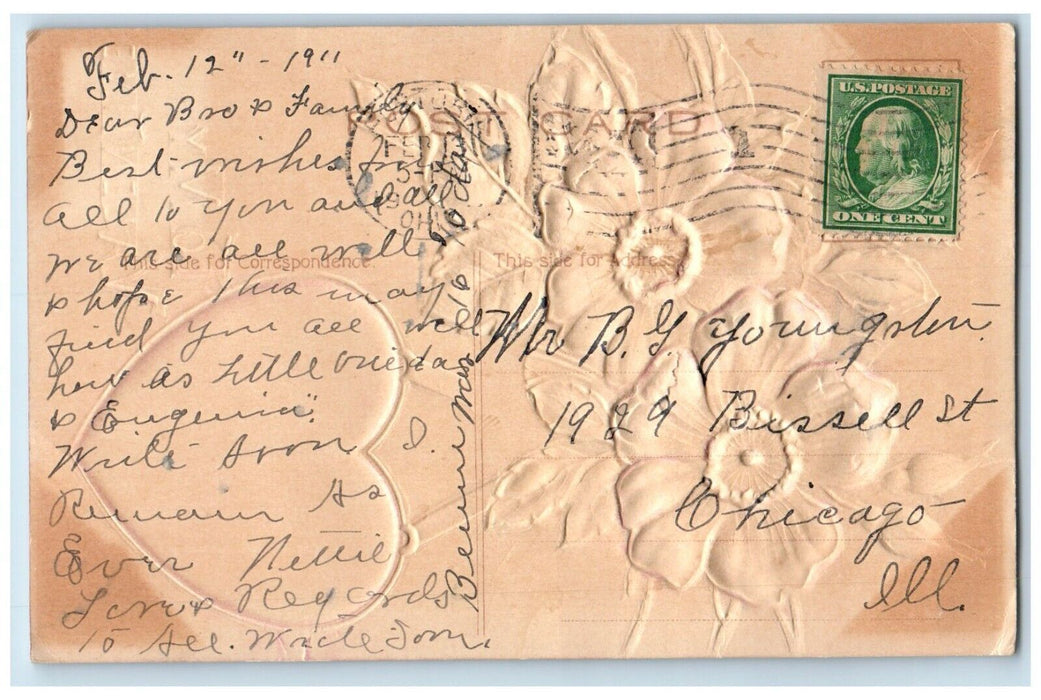 Feb. 12" - 1911
Dear Bro & Family
Best wishes for
all to you and all
we are all well
& hope this may
find you all well
how is little
& Eugenia"
Write soon I.
Remain As
Ever Nettie
Love & Regards
to All. Write Soon.
was 16 today
POST CARD
This side for Correspondence.
This side for Address
U.S. POSTAGE
ONE CENT
Mr B. G Youngsten.
1929 Bissell St
Chicago
Ill.